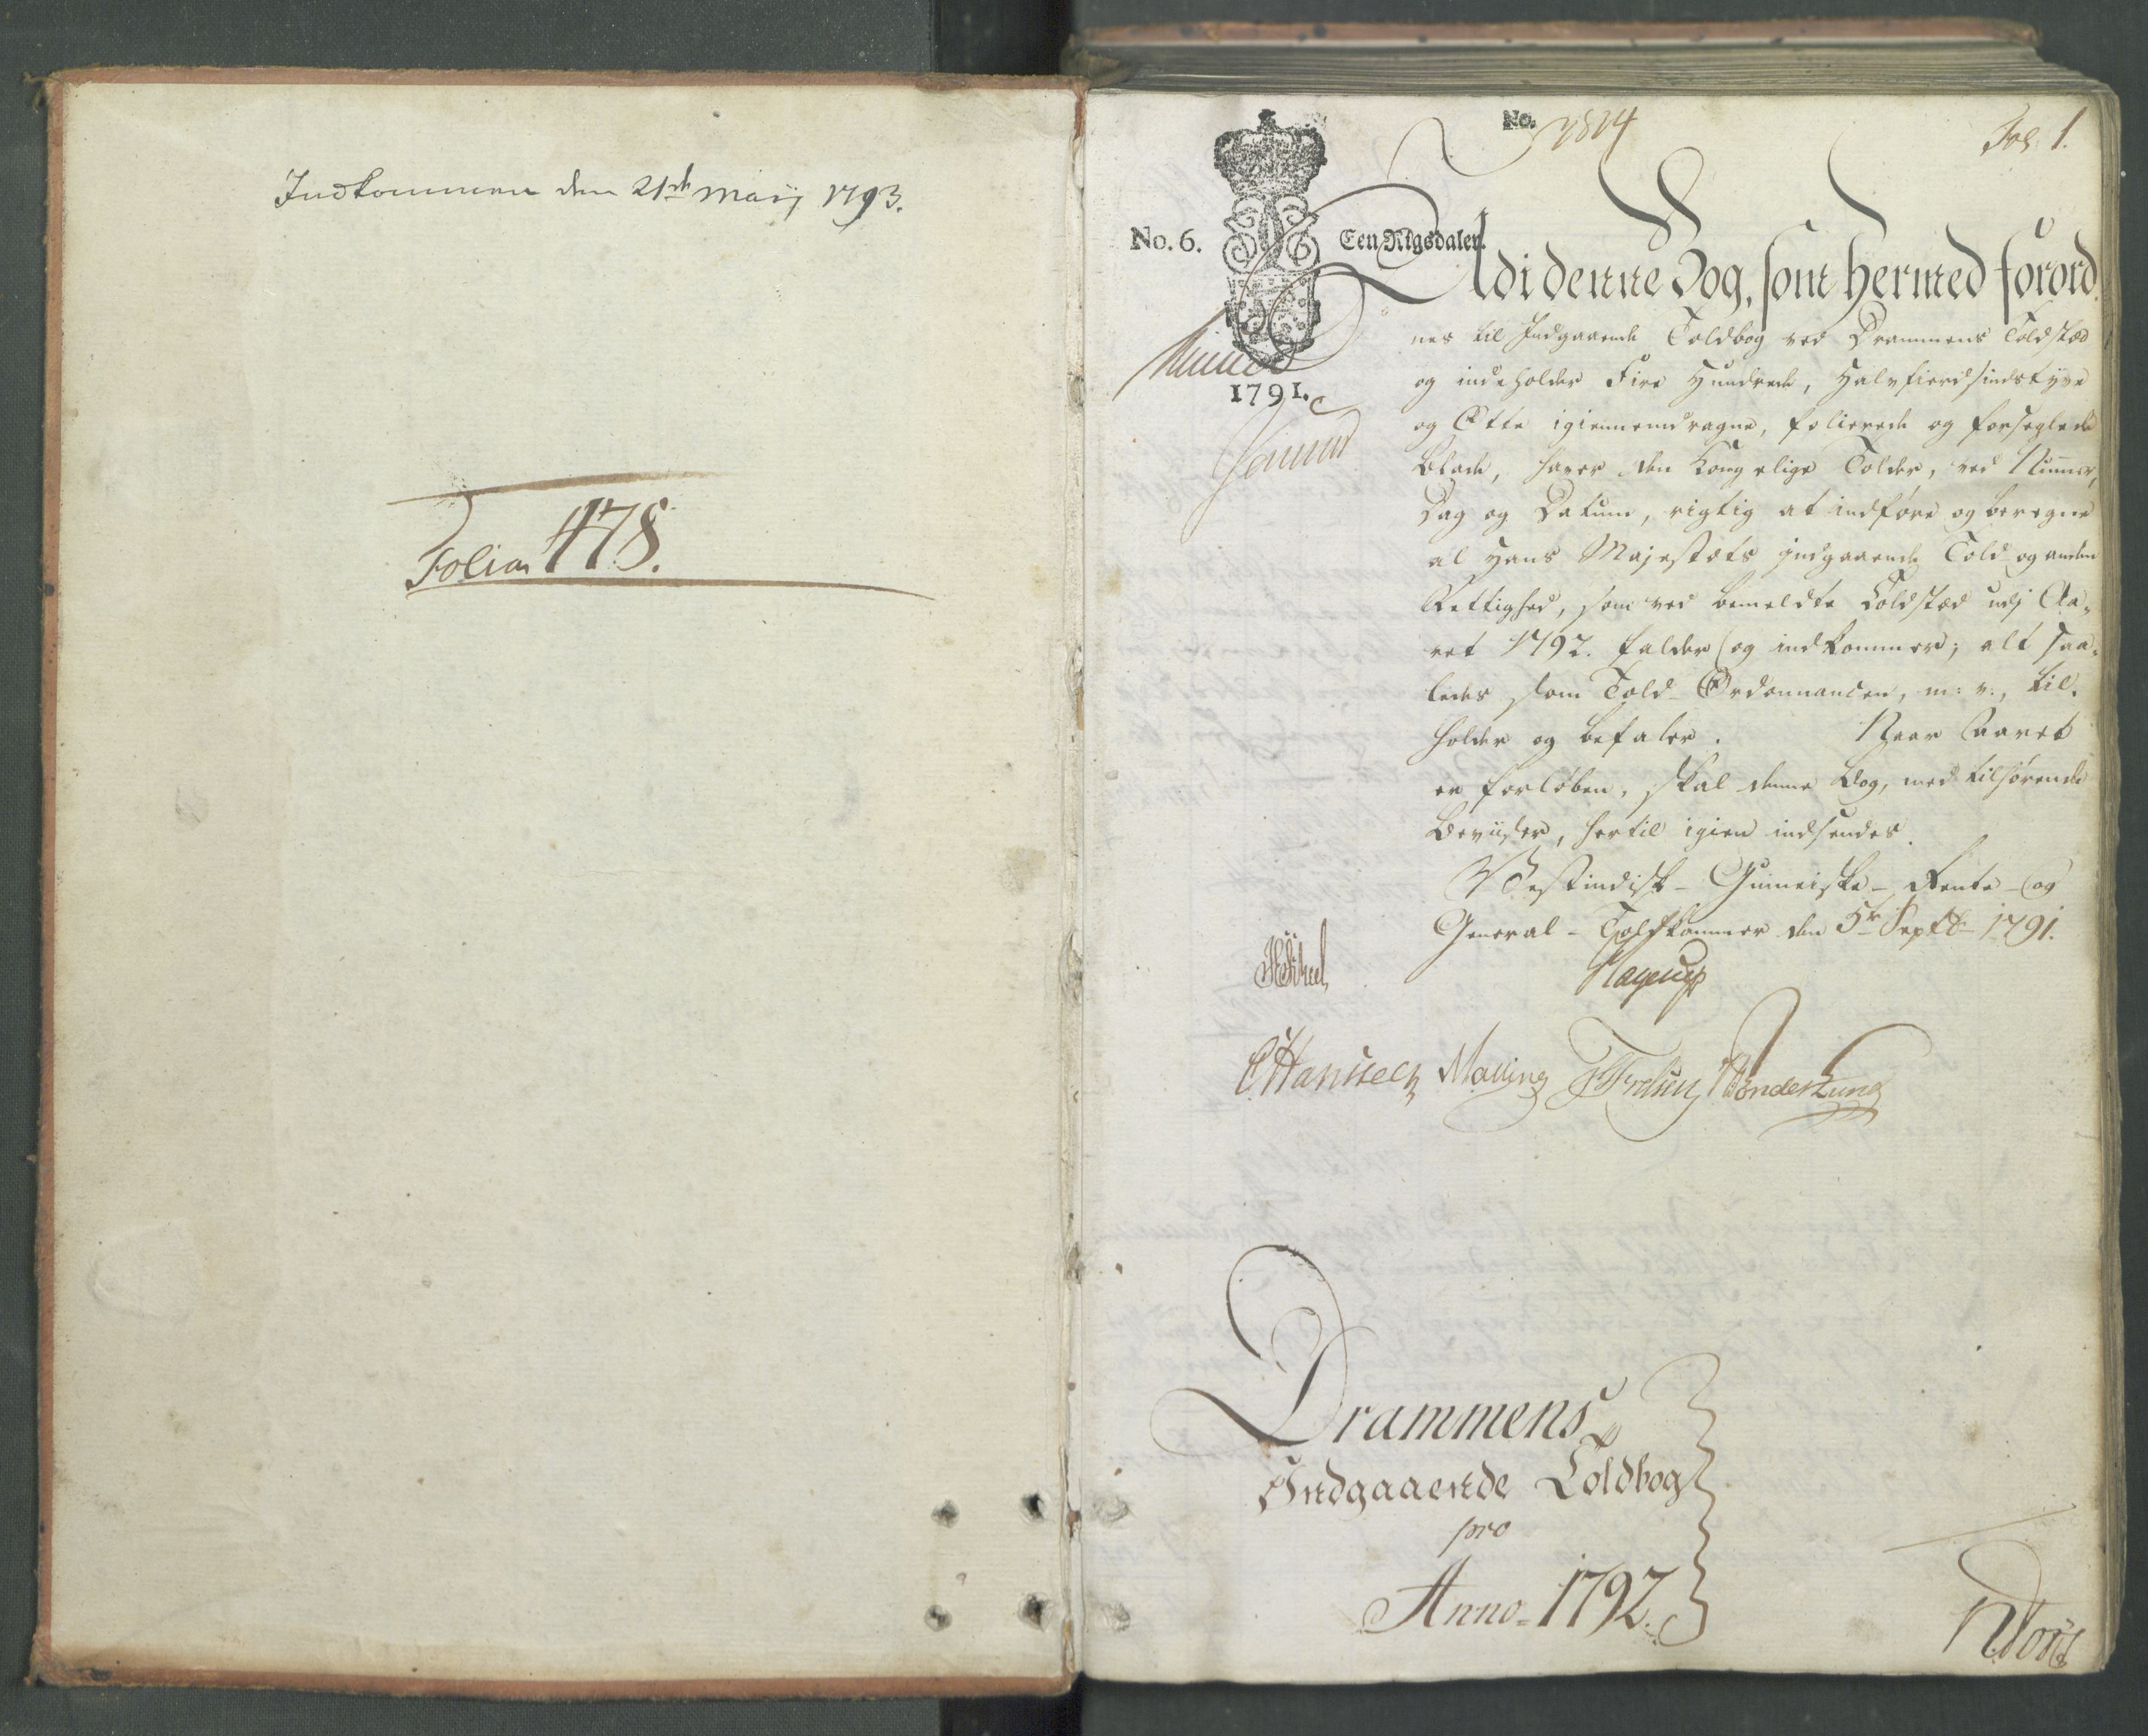 Indkommen den 21de Maij 1793.
Folia 478.
No. 7814
Fol. 1.
No. 6.
Een Rigsdaler.
1791.
Udi denne Bog, som hermed forord¬
nes til Indgaaende Toldbog ved Drammens Toldsted
og indeholder Fire Hundrede, Halvfierdsindstyve
og Otte igiennemdragne, folierede og forseglede
Blade, haver den Kongelige Tolder, ved Nummer,
Dag og Datum, rigtig at indføre og beregne
al Hans Majestæts indgaaende Told og anden
Rettighed, som ved bemeldte Toldsted udj Aa¬
ret 1792. falder og indkommer; alt saa¬
ledes som Told-Ordonnancen, m: v:, til¬
holder og befaler. Naar Aaret
er forløben, skal denne Bog, med tilhørende
Beviiser, hertil igien indsendes.
Vestindisk-Guineiske-Rente-og
General-Toldkammer den 5te Septbr 1791.
Hagerup
CHansen Malling Sønderburg
Drammens
Indgaaende Toldbog
pro
Anno 1792.